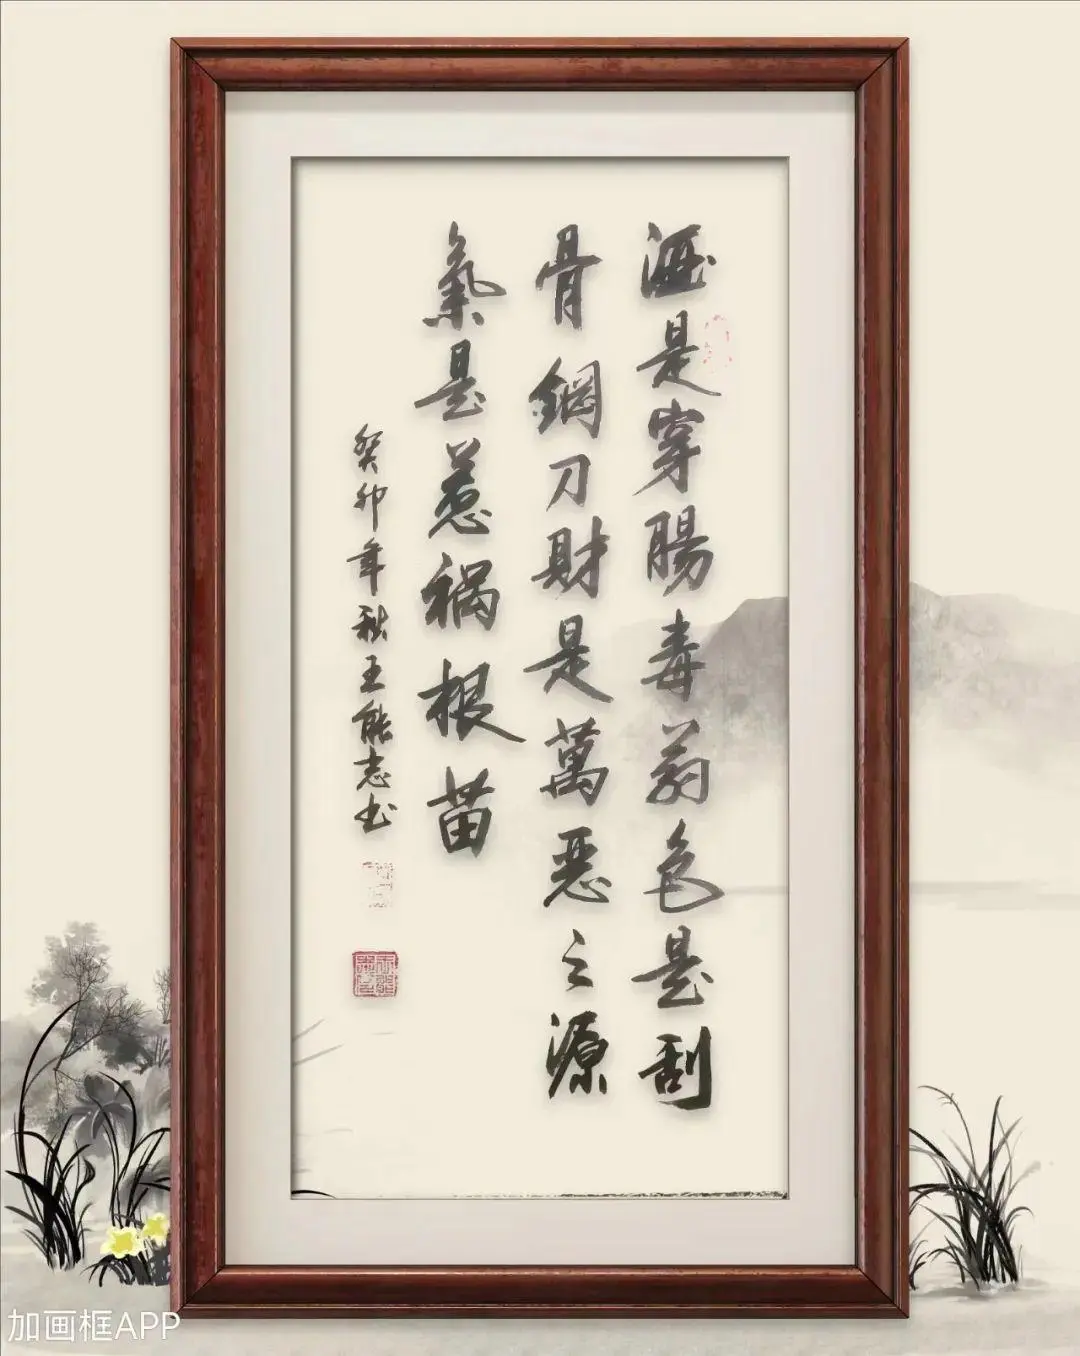 酒是穿腸毒药色是刮
骨鋼刀財是萬恶之源
氣是惹禍根苗
癸卯年秋王能志书
加画框APP